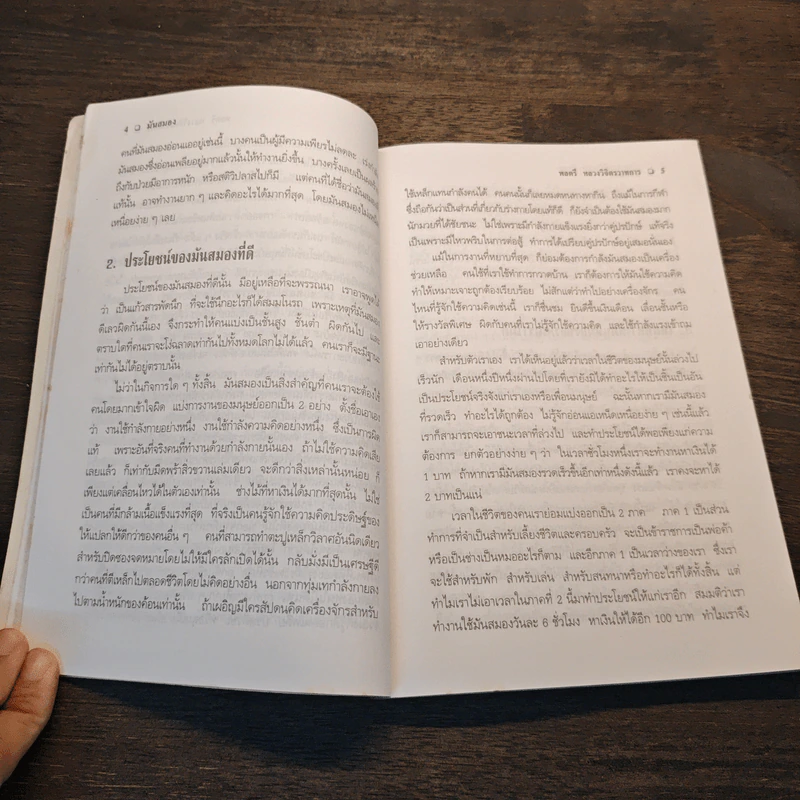 4 ❏ มันสมอง
คนที่มันสมองอ่อนแออยู่เช่นนี้ บางคนเป็นผู้มีความเพียรไม่ลดละ
มันสมองซึ่งอ่อนเพลียอยู่มากแล้วนั้นให้ทำงานยิ่งขึ้น บางครั้งเลยเป็น
ถึงกับป่วยมีอาการหนัก หรือสติวิปลาสไปก็มี แต่คนที่ได้ชื่อว่ามันสมอง
แท้นั้น อาจทำงานยาก ๆ และคิดอะไรได้มากที่สุด โดยมันสมองไม่
เหนื่อยง่าย ๆ เลย
2. ประโยชน์ของมันสมองที่ดี
ประโยชน์ของมันสมองที่ดีนั้น มีอยู่เหลือที่จะพรรณนา เราอาจพูด
ว่า เป็นแก้วสารพัดนึก ที่จะใช้นึกอะไรก็ได้สมมโนรถ เพราะเหตุที่มันสมอง
ดีเลวผิดกันนี้เอง จึงกระทำให้คนแบ่งเป็นชั้นสูง ชั้นต่ำ ผิดกันไป และ
ตราบใดที่คนเราจะโง่ฉลาดเท่ากันไปทั้งหมดโลกไม่ได้แล้ว คนเราก็จะมีฐานะ
เท่ากันไม่ได้อยู่ตราบนั้น
ไม่ว่าในกิจการใด ๆ ทั้งสิ้น มันสมองเป็นสิ่งสำคัญที่คนเราจะต้องใช้
คนโดยมากเข้าใจผิด แบ่งการงานของมนุษย์ออกเป็น 2 อย่าง ตั้งชื่อเอาเอง
ว่า งานใช้กำลังกายอย่างหนึ่ง งานใช้กำลังความคิดอย่างหนึ่ง ซึ่งเป็นการผิด
แท้ เพราะอันที่จริงคนที่ทำงานด้วยกำลังกายนั้นเอง ถ้าไม่ใช้ความคิดเสีย
เลยแล้ว ก็เท่ากับมีดพร้าสิ่วขวานเล่มเดียว จะดีกว่าสิ่งเหล่านั้นหน่อย ก็
เพียงแต่เคลื่อนไหวได้ในตัวเองเท่านั้น ช่างไม้ที่หาเงินได้มากที่สุดนั้น ไม่ใช่
เป็นคนที่มีกล้ามเนื้อแข็งแรงที่สุด ที่จริงเป็นคนรู้จักใช้ความคิดประดิษฐ์ของ
ให้แปลกให้ดีกว่าของคนอื่น ๆ คนที่สามารถทำตะปูเหล็กวิลาศอันนิดเดียว
สำหรับปิดซองจดหมายโดยไม่ให้มีใครลักเปิดได้นั้น กลับมั่งมีเป็นเศรษฐีดี
กว่าคนที่ตีเหล็กไปตลอดชีวิตโดยไม่คิดอย่างอื่น นอกจากทุ่มเทกำลังกายลง
ไปตามน้ำหนักของค้อนเท่านั้น ถ้าเผอิญมีใครสัปดนคิดเครื่องจักรสำหรับ
พลตรี หลวงวิจิตรวาทการ ❏ 5
ใช้เหล็กแทนกำลังคนได้ คนคนนั้นก็เลยหมดหนทางหากิน ถึงแม้ในการกีฬา
ซึ่งถือกันว่าเป็นส่วนที่เกี่ยวกับร่างกายโดยแท้ก็ดี ก็ยังจำเป็นต้องใช้มันสมองมาก
นักมวยที่ได้ชัยชนะ ไม่ใช่เพราะมีกำลังกายแข็งแรงยิ่งกว่าคู่ปรปักษ์ แท้จริง
เป็นเพราะมีไหวพริบในการต่อสู้ ทำการได้เปรียบคู่ปรปักษ์อยู่เสมอนั่นเอง
แม้ในการงานที่หยาบที่สุด ก็ย่อมต้องการกำลังมันสมองเป็นเครื่อง
ช่วยเหลือ คนใช้ที่เราใช้ทำการกวาดบ้าน เราก็ต้องการให้มันใช้ความคิด
ทำให้เหมาะเจาะถูกต้องเรียบร้อย ไม่สักแต่ว่าทำไปอย่างเครื่องจักร คน
ไหนที่รู้จักใช้ความคิดเช่นนี้ เราก็ชื่นชม ยินดีขึ้นเงินเดือน เลื่อนชั้นหรือ
ให้รางวัลพิเศษ ผิดกับคนที่เราไม่รู้จักใช้ความคิด และใช้กำลังแรงเข้าถม
เอาอย่างเดียว
สำหรับตัวเราเอง เราได้เห็นอยู่แล้วว่าเวลาในชีวิตของมนุษย์นั้นล่วงไป
เร็วนัก เดือนหนึ่งปีหนึ่งผ่านไปโดยที่เรายังมิได้ทำอะไรให้เป็นชิ้นเป็นอัน
เป็นประโยชน์จริงจังแก่เราเองหรือเพื่อนมนุษย์ ฉะนั้นหากเรามีมันสมอง
ที่รวดเร็ว ทำอะไรได้ถูกต้อง ไม่รู้จักอ่อนแอเหน็ดเหนื่อยง่าย ๆ เช่นนี้แล้ว
เราก็สามารถจะเอาชนะเวลาที่ล่วงไป และทำประโยชน์ได้พอเพียงแก่ความ
ต้องการ ยกตัวอย่างง่าย ๆ ว่า ในเวลาชั่วโมงหนึ่งเราจะทำงานหาเงินได้
1 บาท ถ้าหากเรามีมันสมองรวดเร็วขึ้นอีกเท่าหนึ่งดังนี้แล้ว เราคงจะหาได้
2 บาทเป็นแน่
เวลาในชีวิตของคนเราย่อมแบ่งออกเป็น 2 ภาค ภาค 1 เป็นส่วน
ทำการที่จำเป็นสำหรับเลี้ยงชีวิตและครอบครัว จะเป็นข้าราชการเป็นพ่อค้า
หรือเป็นช่างเป็นหมออะไรก็ตาม และอีกภาค 1 เป็นเวลาว่างของเรา ซึ่งเรา
จะใช้สำหรับพัก สำหรับเล่น สำหรับสนทนาหรือทำอะไรก็ได้ทั้งสิ้น แต่
ทำไมเราไม่เอาเวลาในภาคที่ 2 นี้มาทำประโยชน์ให้แก่เราอีก สมมติว่าเรา
ทำงานใช้มันสมองวันละ 6 ชั่วโมง หาเงินให้ได้อีก 100 บาท ทำไมเราจึง